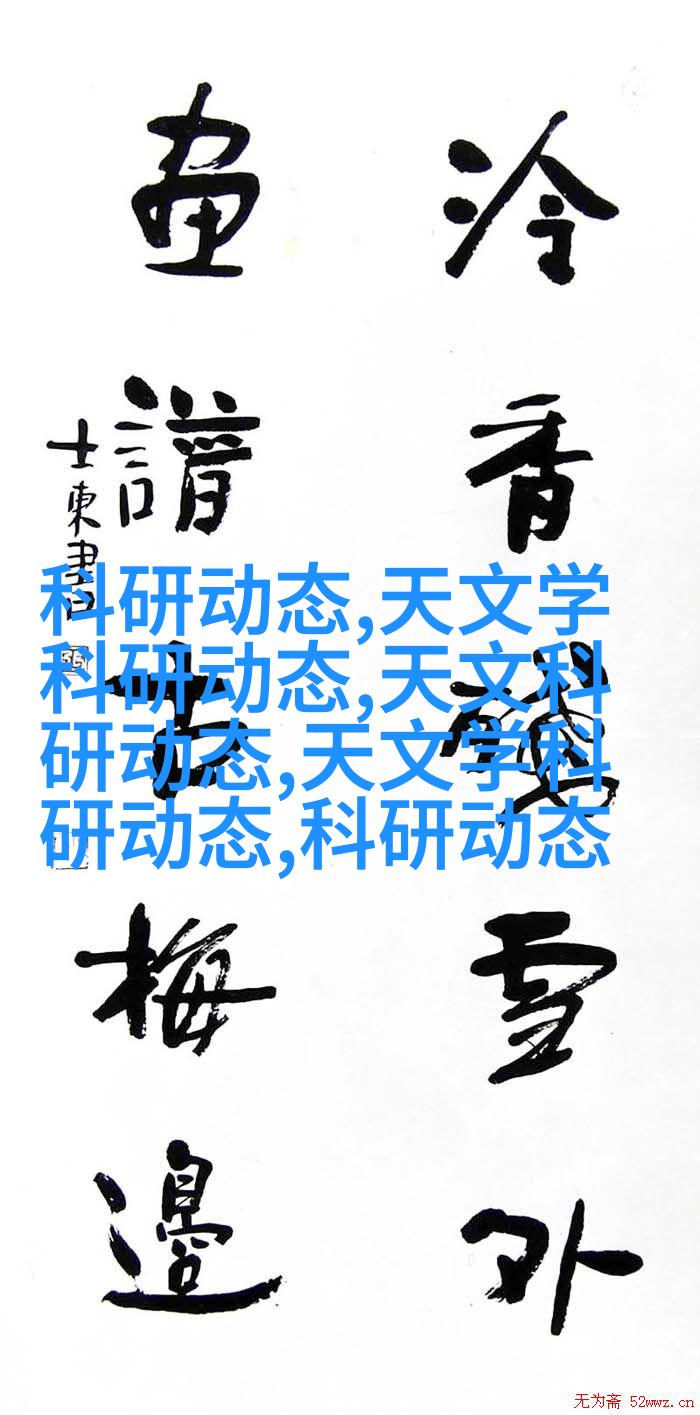 泠香
雪外
畫譜古梅邊
士東書
科研动态,天文学
科研动态,天文科
研动态,天文学科
研动态,科研动态
无为斋 52wwz.cn